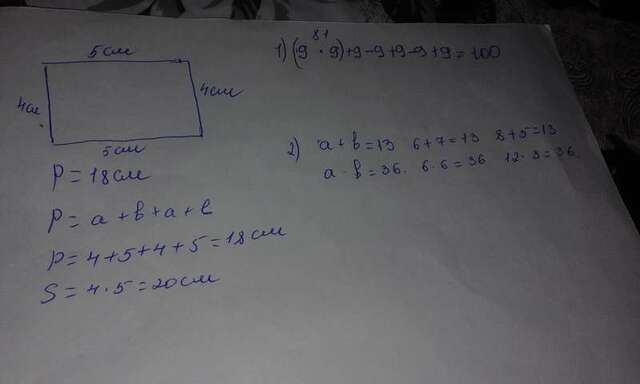 5см
4см
4см
5см
P = 18см
P = a + b + a + b
P = 4 + 5 + 4 + 5 = 18см
S = 4 · 5 = 20см
81
1) (9 · 9) + 9 - 9 + 9 - 9 + 9 = 100
2) a + b = 13 6 + 7 = 13 8 + 5 = 13
a · b = 36. 6 · 6 = 36 12 · 3 = 36.